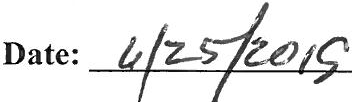 Date: 6/25/2019